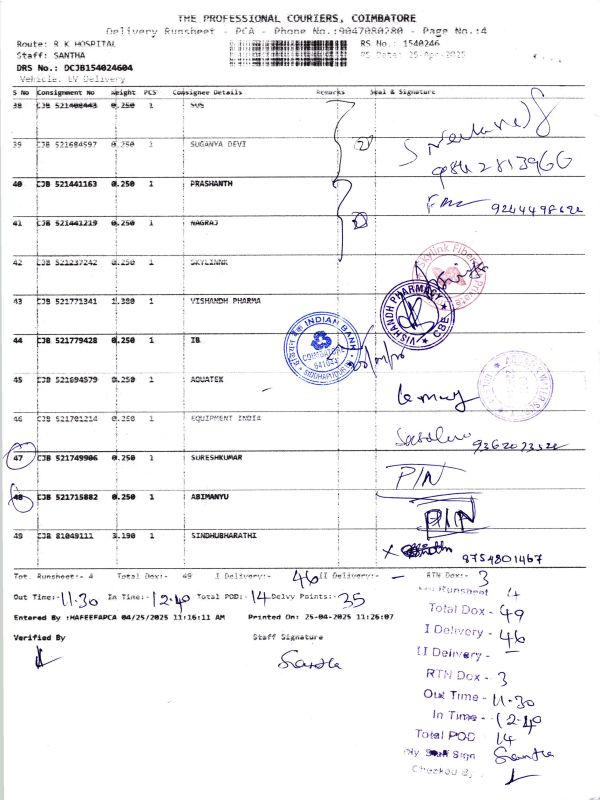 THE PROFESSIONAL COURIERS, COIMBATORE
Delivery Runsheet - PCA - Phone No.:9047080280 - Page No.:4
Route: R K HOSPITAL RS No.: 1540246
Staff: SANTHA RS Date: 25-Apr-2025
DRS No.: DCJB154024604
Vehicle: EV Delivery
S No Consignment No Weight PCS Consignee Details Remarks Seal & Signature
38 CJB 521408443 0.250 1 SUS
39 CJB 521684597 0.250 1 SUGANYA DEVI 2
9842813966
40 CJB 521441163 0.250 1 PRASHANTH
9244498622
41 CJB 521441219 0.250 1 NAGRAJ
42 CJB 521237242 0.250 1 SKYLINNK
Skylink Fiber Private
43 CJB 521771341 1.380 1 VISHANDH PHARMA
VISHANDH PHARMACY CBE
44 CJB 521779428 0.250 1 IB
INDIAN BANK
45 CJB 521694579 0.250 1 AQUATEK
46 CJB 521701214 0.250 1 EQUIPMENT INDIA
47 CJB 521749906 0.250 1 SURESHKUMAR PIN
48 CJB 521715882 0.250 1 ABIMANYU PIN
49 CJB 81049111 3.190 1 SINDHUBHARATHI X 9754801467
Tot. Runsheet:- 4 Total Dox:- 49 I Delivery:- 46 II Delivery:- - RTN Dox:- 3
Out Time:- 11.30 In Time:- 12.40 Total POD: 14 Delvy Points:- 35
Entered By :HAFEEFAPCA 04/25/2025 11:16:11 AM Printed On: 25-04-2025 11:26:07
Verified By Staff Signature
Santha
Runsheet 4
Total Dox - 49
I Delivery - 46
II Delivery - -
RTN Dox - 3
Out Time - 11.30
In Time - 12.40
Total POD 14
Dly Staff Sign Santha
Checked By